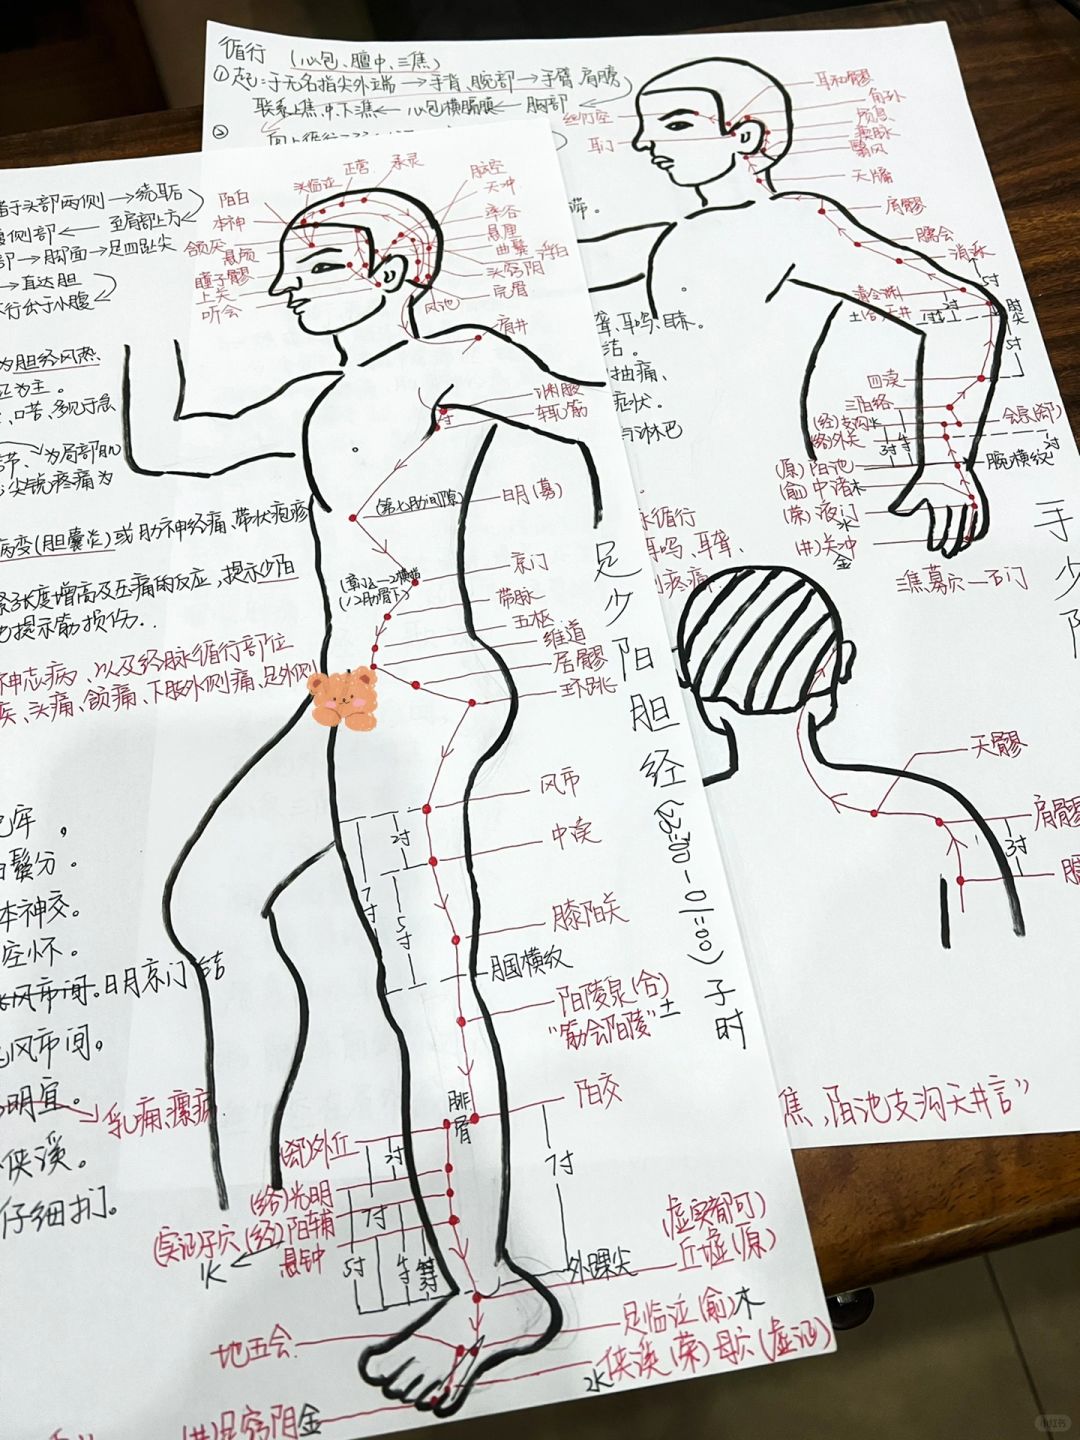 循行 (心包、膻中、三焦)
① 起:于无名指尖外端→手背、腕部→手臂、肩膀
联系上焦、中、下焦←心包横膈膜←胸部
②
耳和髎
角孙
颅息
瘈脉
翳风
天牖
丝竹空
耳门
肩髎
臑会
消泺
清冷渊
土(合)天井
肘尖
5寸
四渎
三阳络
(经)支沟火
(络)外关
会宗(郄)
(原)阳池
腕横纹
(俞)中渚木
(荥)液门
水
(井)关冲
金
三焦募穴—石门
手少阳
天髎
肩髎
3寸
焦,阳池支沟天井言”
聋、耳鸣、目赤。
洁。
抽痛、
症状。
与淋巴
脉循行
耳鸣、耳聋、
疼痛
正营
承灵
头临泣
脑空
天冲
阳白
本神
率谷
悬厘
颔厌
悬颅
曲鬓
浮白
瞳子髎
头窍阴
上关
完骨
听会
风池
肩井
渊腋
辄筋
(第七肋间隙)
日月(募)
京门
(12肋骨下)
带脉
五枢
维道
居髎
环跳
风市
2寸
中渎
7寸
5寸
膝阳关
腘横纹
阳陵泉(合)土
“筋会阳陵”
阳交
腓骨
7寸
(郄)外丘
2寸
(络)光明
(实泻)子穴(经)阳辅
火
7寸
悬钟
5寸
4寸
外踝尖
(虚实都可)
丘墟(原)
地五会
足临泣(俞)木
水 侠溪(荥)母穴(虚泻)
(井)足窍阴金
足少阳胆经(23:00-01:00)子时
于头部两侧→绕耳后
侧部←至肩部上方
→脚面→足四趾尖
→直达胆
行出于小腹
为胆经风热
证为主。
、口苦、多见于急
节、为局部肌
尖锐疼痛为
病变(胆囊炎)或肋神经痛、带状疱疹
张度增高及压痛的反应,提示少阳
也提示筋损伤..
神志病、以及经脉循行部位
疾、头痛、颔痛、下肢外侧痛、足外侧
鬓分。
本神交。
空怀。
风市间。日月京门结
风市间。
明宜。
乳痈、瘰疬
侠溪。
仔细扪。
小红书